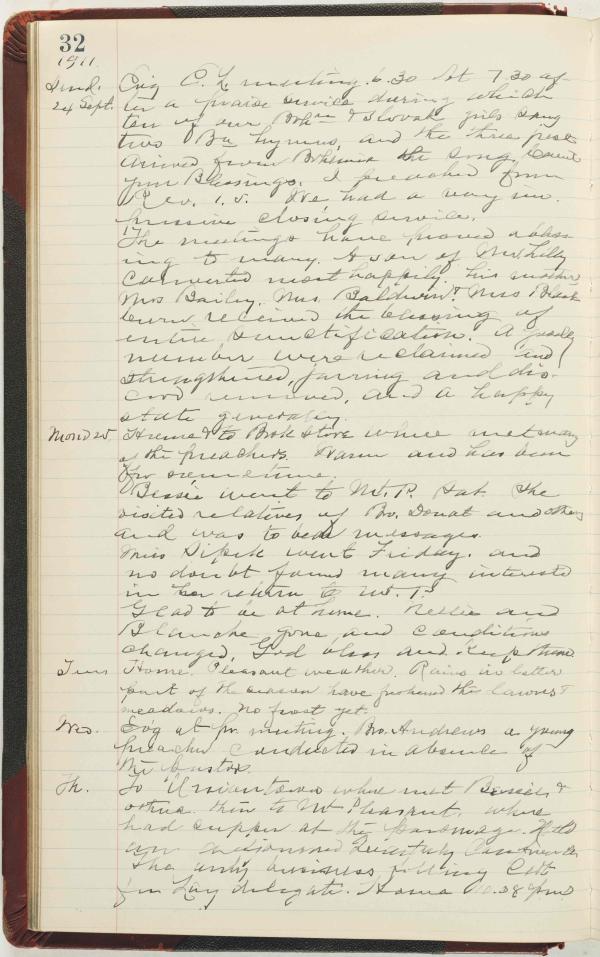 32
1911.
Sund. Evg E. L. meeting. 6.30 At 7.30 af
24 Sept. ter a praise service during which
ten of our Bohn & Slovak girls sang
two Bo hymns, and the three just
arrived from Bohemia the song, Count
your Blessings. I preached from
Rev. 1.5. We had a very im
pressive closing service.
The meetings have proved a bless
ing to many. A son of Mr Lilly
converted most happily. his mother
Mrs Bailey, Mrs. Baldwin & Mrs Black
burn received the blessing of
entire sanctification. A goodly
number were reclaimed and
strengthened, jarring and dis-
cord removed, and a happy
state generally.
Mond 25 Home & to Book Store where met many
of the preachers. Warm and has been
for sometime.
Bessie went to Mt. P. Sat. She
visited relatives of Bro. Donat and others
and was to bear messages.
Miss Dipek went Friday. and
no doubt found many interests
in her return to Mt. P.
Glad to be at home. Nellie and
Blanche gone, and conditions
changed, God bless and keep them
Tues Home. Pleasant weather. Rains in latter
part of the season have freshened the lawns &
meadows. No frost yet.
Wed. Evg at pr. meeting. Bro. Andrews a young
preacher conducted in absence of
the pastor.
Th. To Uniontown where met Bessie &
others. then to Mt Pleasant, where
had supper at the parsonage. Held
an adjourned Quarterly Conference
The only business, filling
for Lay delegate. Home 10.38 pm